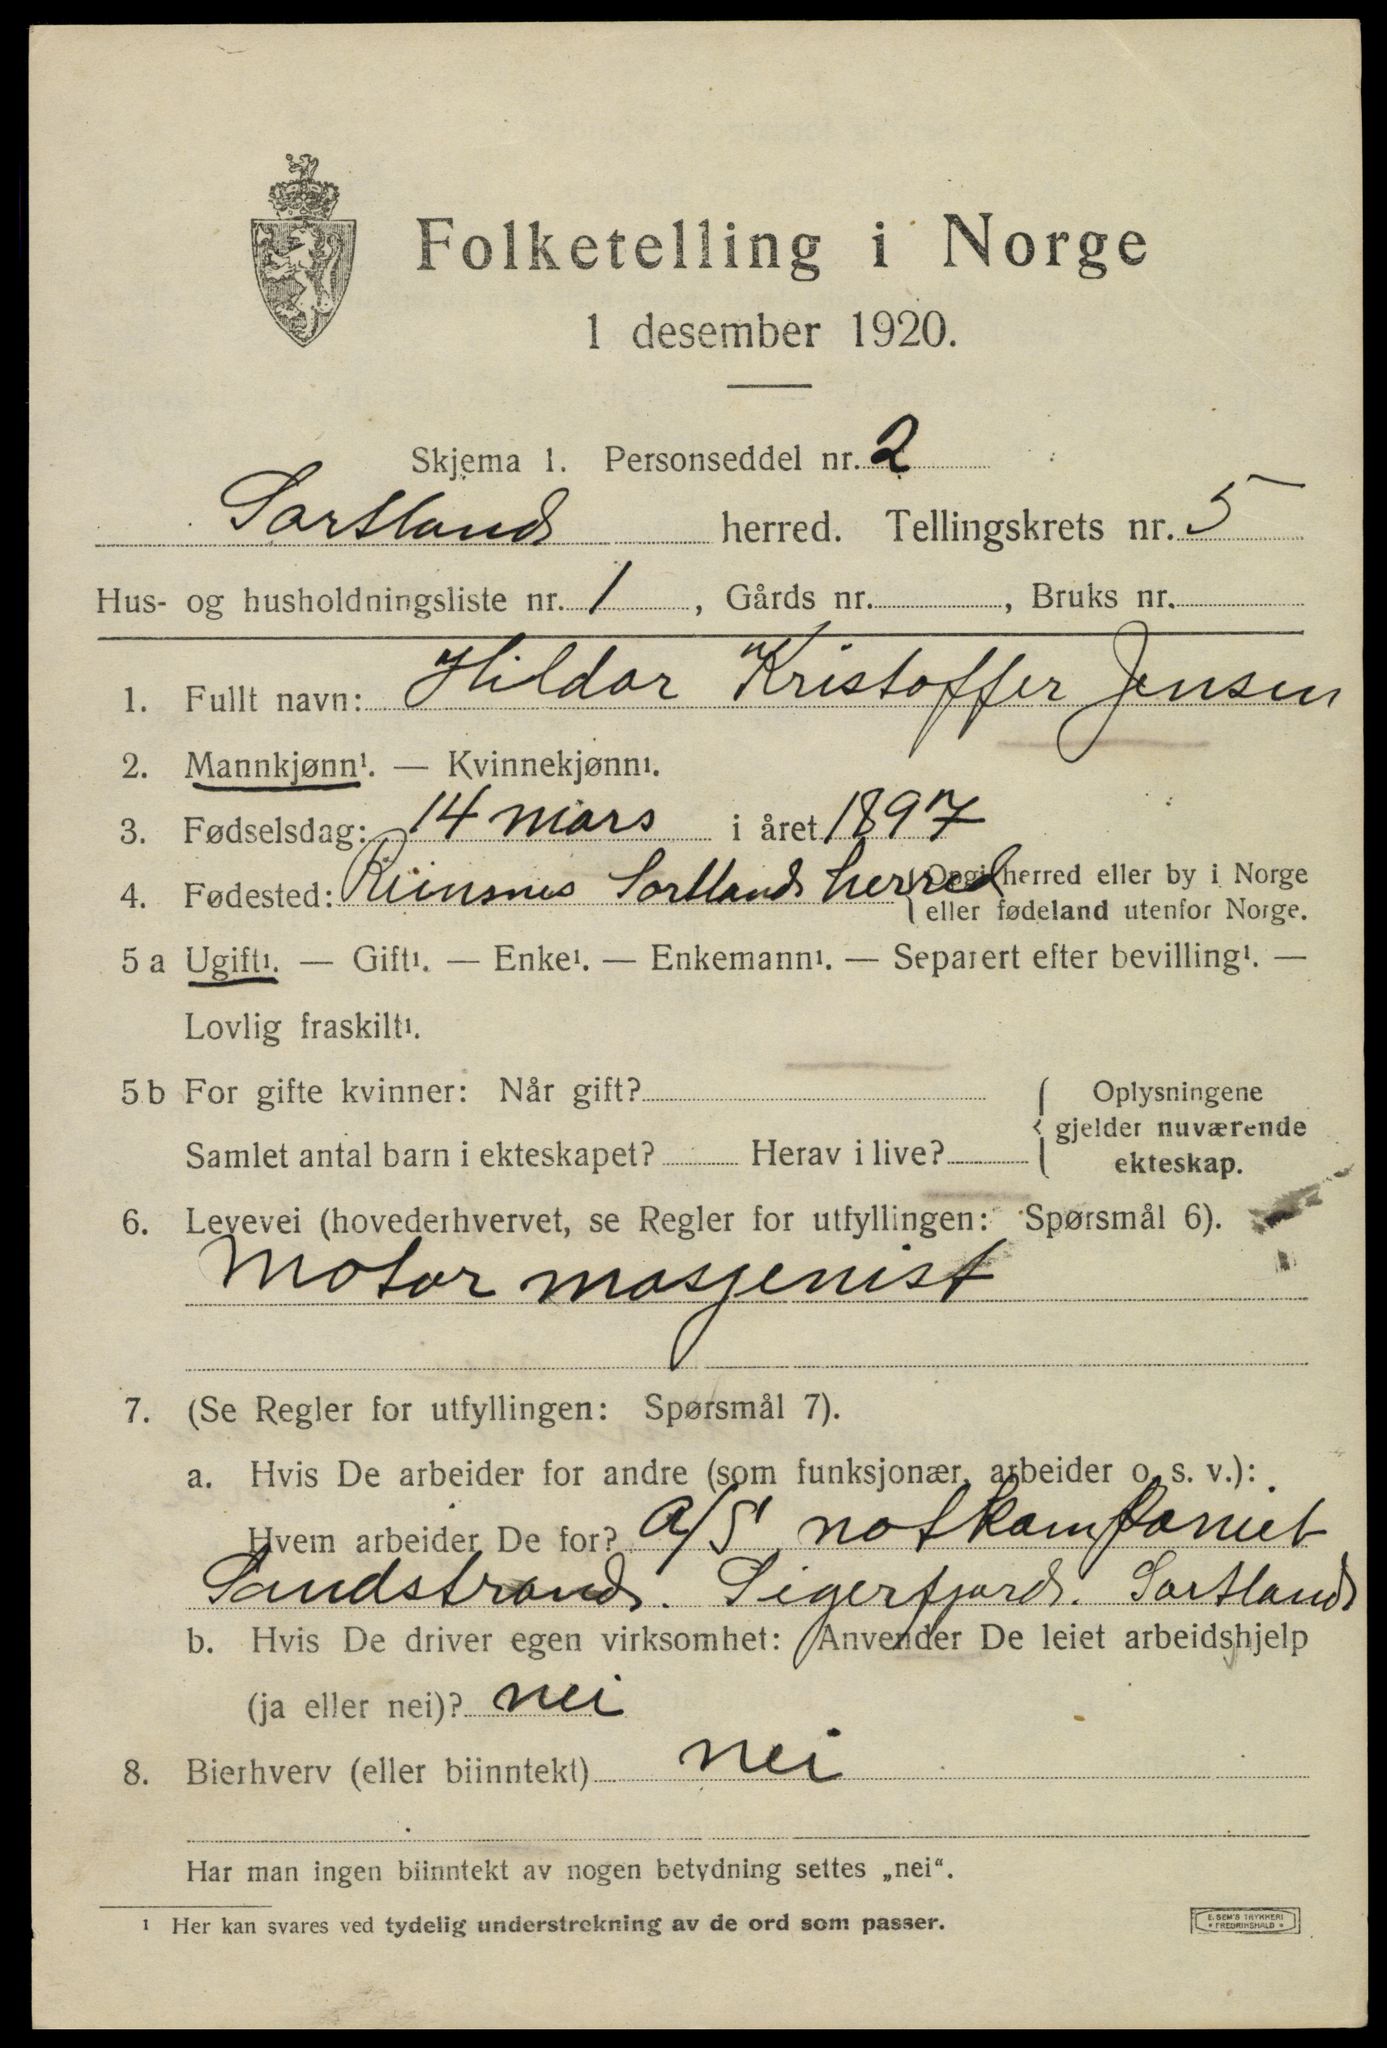 Folketelling i Norge
1 desember 1920.
Skjema 1. Personseddel nr. 2
Sortland herred. Tellingskrets nr. 5
Hus- og husholdningsliste nr. 1, Gårds nr. , Bruks nr.
1. Fullt navn: Hildor Kristoffer Jensen
2. Mannkjønn¹. — Kvinnekjønn¹.
3. Fødselsdag: 14 mars i året 1897
4. Fødested: Reinsnes Sortland herred { Opgi herred eller by i Norge
eller fødeland utenfor Norge.
5 a Ugift¹. — Gift¹. — Enke¹. — Enkemann¹. — Separert efter bevilling¹. —
Lovlig fraskilt¹.
5 b For gifte kvinner: Når gift? { Oplysningene
gjelder nuværende
Samlet antal barn i ekteskapet? Herav i live? ekteskap.
6. Levevei (hovederhvervet, se Regler for utfyllingen: Spørsmål 6).
Motor masjenist
7. (Se Regler for utfyllingen: Spørsmål 7).
a. Hvis De arbeider for andre (som funksjonær, arbeider o. s. v.):
Hvem arbeider De for? A/S notkompaniet
Sandstrand. Sigerfjord. Sortland
b. Hvis De driver egen virksomhet: Anvender De leiet arbeidshjelp
(ja eller nei)? nei
8. Bierhverv (eller biinntekt) nei
Har man ingen biinntekt av nogen betydning settes „nei“.
¹ Her kan svares ved tydelig understrekning av de ord som passer.
E. SEM'S TRYKKERI
* FREDRIKSHALD *